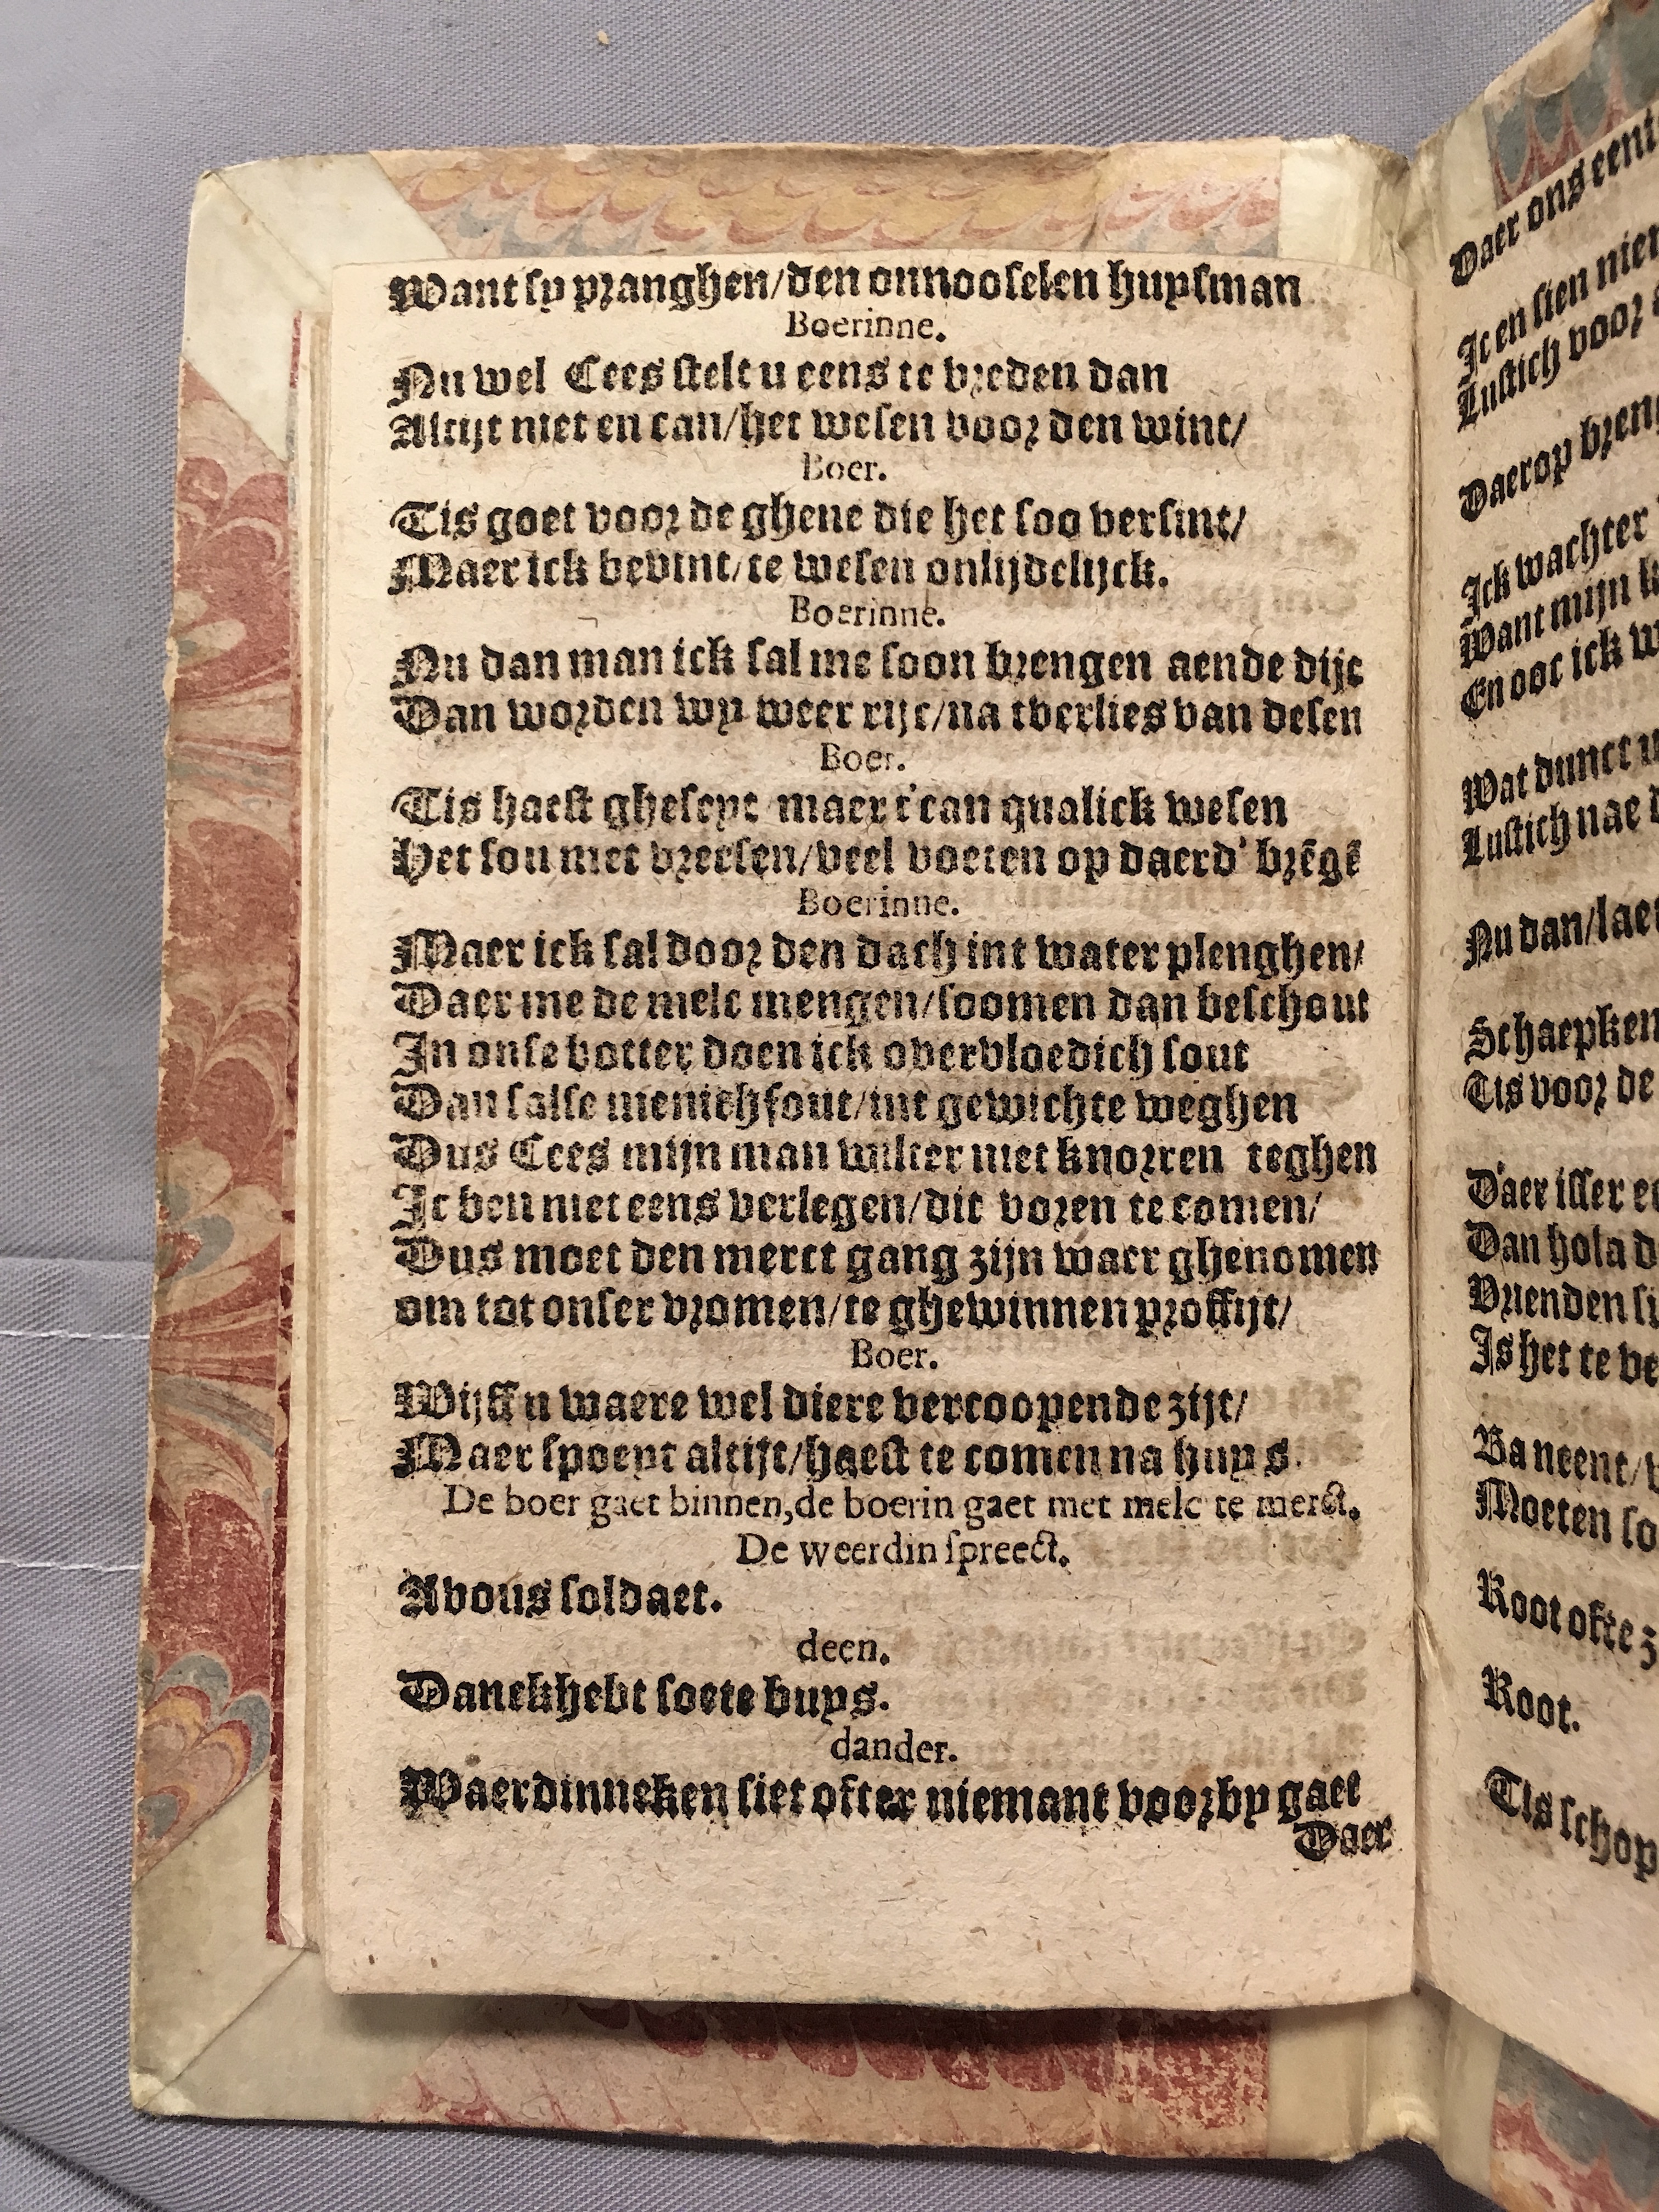 Want sy pranghen/den onnooselen huysman
Boerinne.
Nu wel Cees stelt u eens te vreden dan
Altijt niet en can/het wesen voor den wint/
Boer.
Tis goet voor de ghene die het soo versint/
Maer ick bevint/te wesen onlijdelijck.
Boerinne.
Nu dan man ick sal me soon brengen aende dijc
Dan worden wy weer rijc/na tverlies van desen
Boer.
Tis haest gheseyt maer t'can qualick wesen
Het sou niet vreesen/veel voeten op daerd' brēgē
Boerinne.
Maer ick sal door den dach int water plenghen/
Daer me de melc mengen/soomen dan beschout
In onse botter doen ick overvloedich sout
Dan salse menichfout/int gewichte weghen
Dus Cees mijn man wilter niet knorren teghen
Ic ben niet eens verlegen/dit voren te comen/
Dus moet den merct gang zijn waer ghenomen
om tot onser vromen/te ghewinnen proffijt/
Boer.
Wijff u waere wel diere vercoopende zijt/
Maer spoeyt altijt/haest te comen na huys.
De boer gaet binnen, de boerin gaet met melc te merct.
De weerdin spreect.
Avous soldaet.
deen.
Danckhebt soete buys.
dander.
Waerdinneken siet ofter niemant voorby gaet
Daer
Daer ons eeni
Ic en sien nie
Lustich voor
Daerop breng
Ick wachter
Want mijn
En ooc ick w
Wat dunct u
Lustich nae
Nu dan/lae
Schaepken
Tis voor de
D'aer isser e
Dan hola d
Vrienden si
Is het te ve
Ba neent/
Moeten so
Root ofte z
Root.
Tis schop